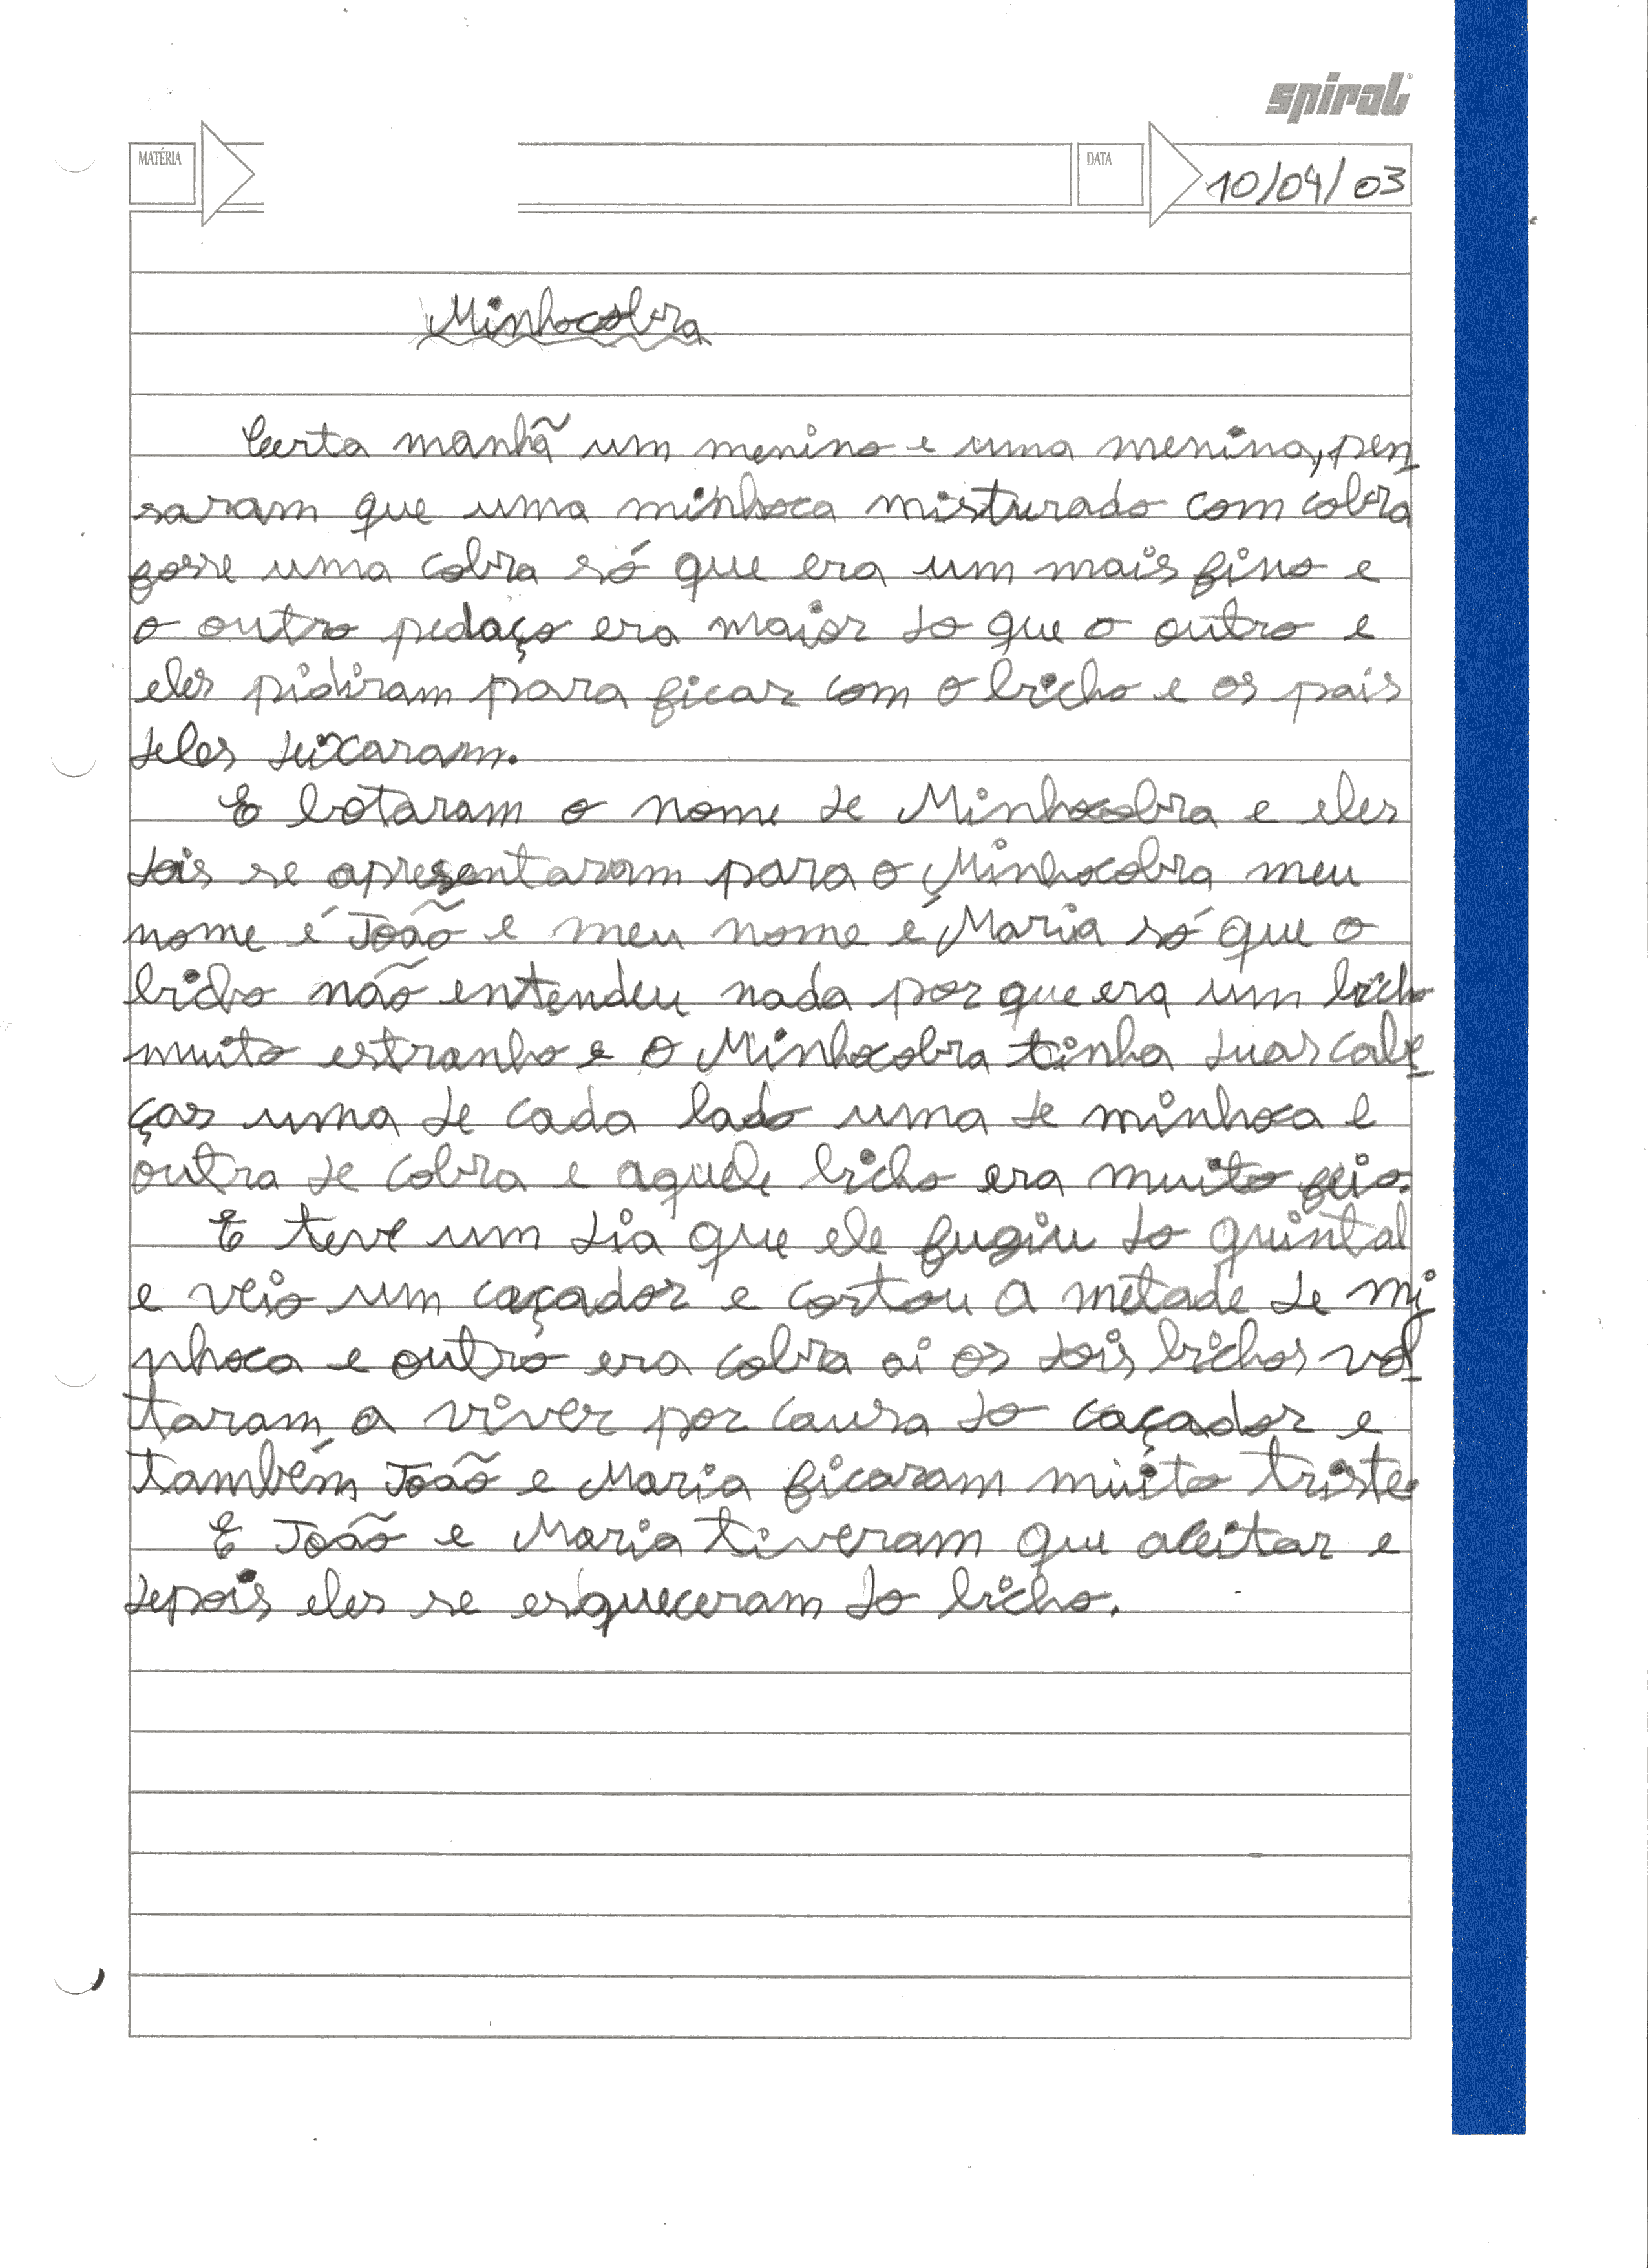 spiral
MATÉRIA
DATA
10/04/03
Minhocobra
Certa manhã um menino e uma menina, pen
saram que uma minhoca misturado com cobra
fosse uma cobra só que era um mais fino e
o outro pedaço era maior do que o outro e
eles pidiram para ficar com o bicho e os pais
deles deixaram.
E botaram o nome de Minhocobra e eles
dois se apresentaram para o Minhocobra meu
nome é João e meu nome é Maria só que o
bicho não entendeu nada por que era um bicho
muito estranho e o Minhocobra tinha duas cabe-
ças uma de cada lado uma de minhoca e
outra de cobra e aquele bicho era muito feio.
E teve um dia que ele fugiu do quintal
e veio um caçador e cortou a metade de mi-
nhoca e outro era cobra ai os dois bichos vol-
taram a viver por causa do caçador e
também João e Maria ficaram muito triste.
E João e Maria tiveram que aceitar e
depois eles se esqueceram do bicho.